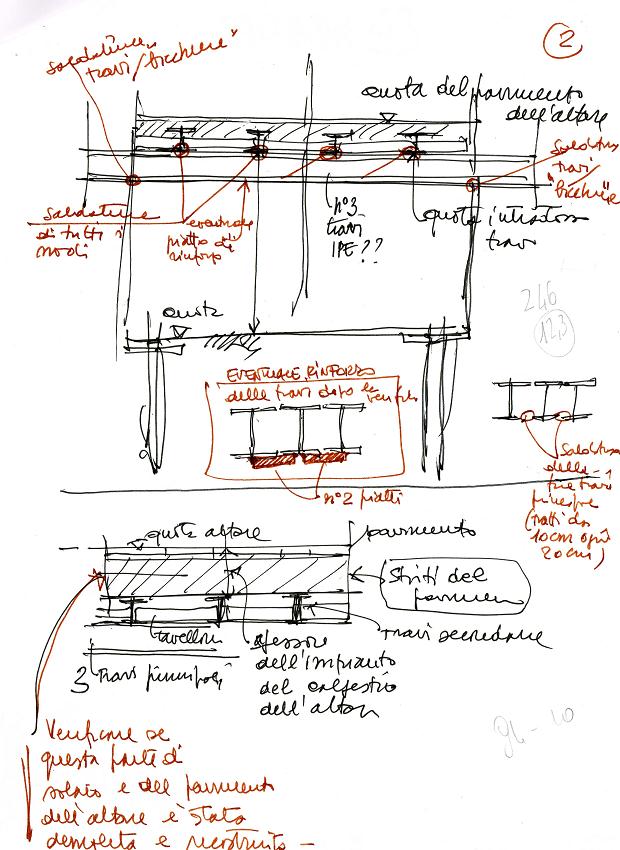 2
saldature
travi/bicchiere"
quota del pavimento
dell'altare
travi
"bicchiere
saldature
di tutti i
nodi
eventuale
piatto di
rinforzo
n°3
travi
IPE??
quota intradosso
travi
quota
246
123
EVENTUALE RINFORZO
delle travi dopo le verifiche
n°2 piatti
saldatura
delle
tre travi
(tratti da
10cm ogni
20cm)
quota altare
pavimento
Strati del
tavelloni
spessore
dell'impianto
del
dell'altare
travi secondarie
3 travi principali
Verificare se
questa parte di
solaio e del pavimento
dell'altare è stata
demolita e ricostruita -